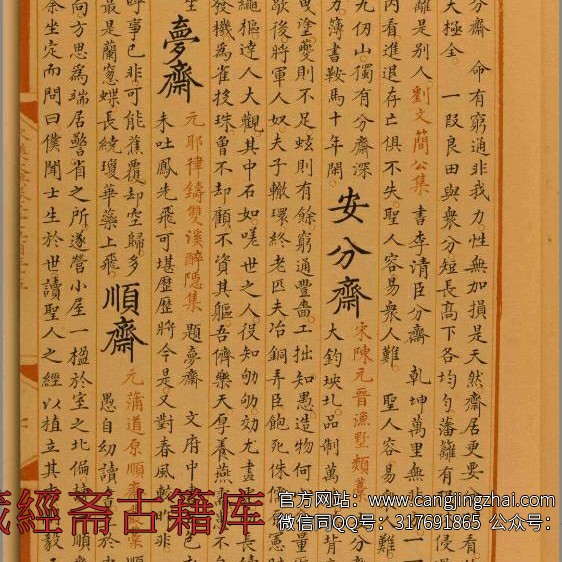 分齋 命有窮通非我力性無加損是天然齋居更要看
大極全 一段良田與衆分短長髙下各均勻藩籬有侵
離是别人劉文簡公集 書李清臣分齋 乾坤萬里無非一
内看進退存亡俱不失聖人容易衆人難 聖人容易難
九仞山獨有分齋深
力簿書鞍馬十年閑
安分齋
宋陳元晋漁墅類藁
大鈞坱圠品制萬背
曳塗夔則不足蚿則有餘窮通豐嗇工拙知愚造物何量
歇後將軍人奴夫子轍環終老匹夫冶銅弄臣飽死侏儒憲
繩樞達人大觀其中石如嗟世之人役知劬劬效尤盡長
發機爲雀投珠曽不却顧不資其軀吾儕樂天原養燕不
生
夢齋
元耶律鑄雙溪醉隱集 題夢齋 文府中色
未吐鳳先飛可堪歷歷將今是又對春風較昨非
時事已非可能蕉覆却空歸多
最是蘭窓蝶長繞瓊華藥上飛
順齋
元蒲道原順齋叢藁 順
愚自幼讀
向方思爲端居警省之所遂營小屋一楹於室之北偏順
余坐定而問曰僕聞士生於世讀聖人之經以植立其毅
藏經斋古籍库
官方网站:www.cangjingzhai.com
微信同QQ号:317691865 公众号: